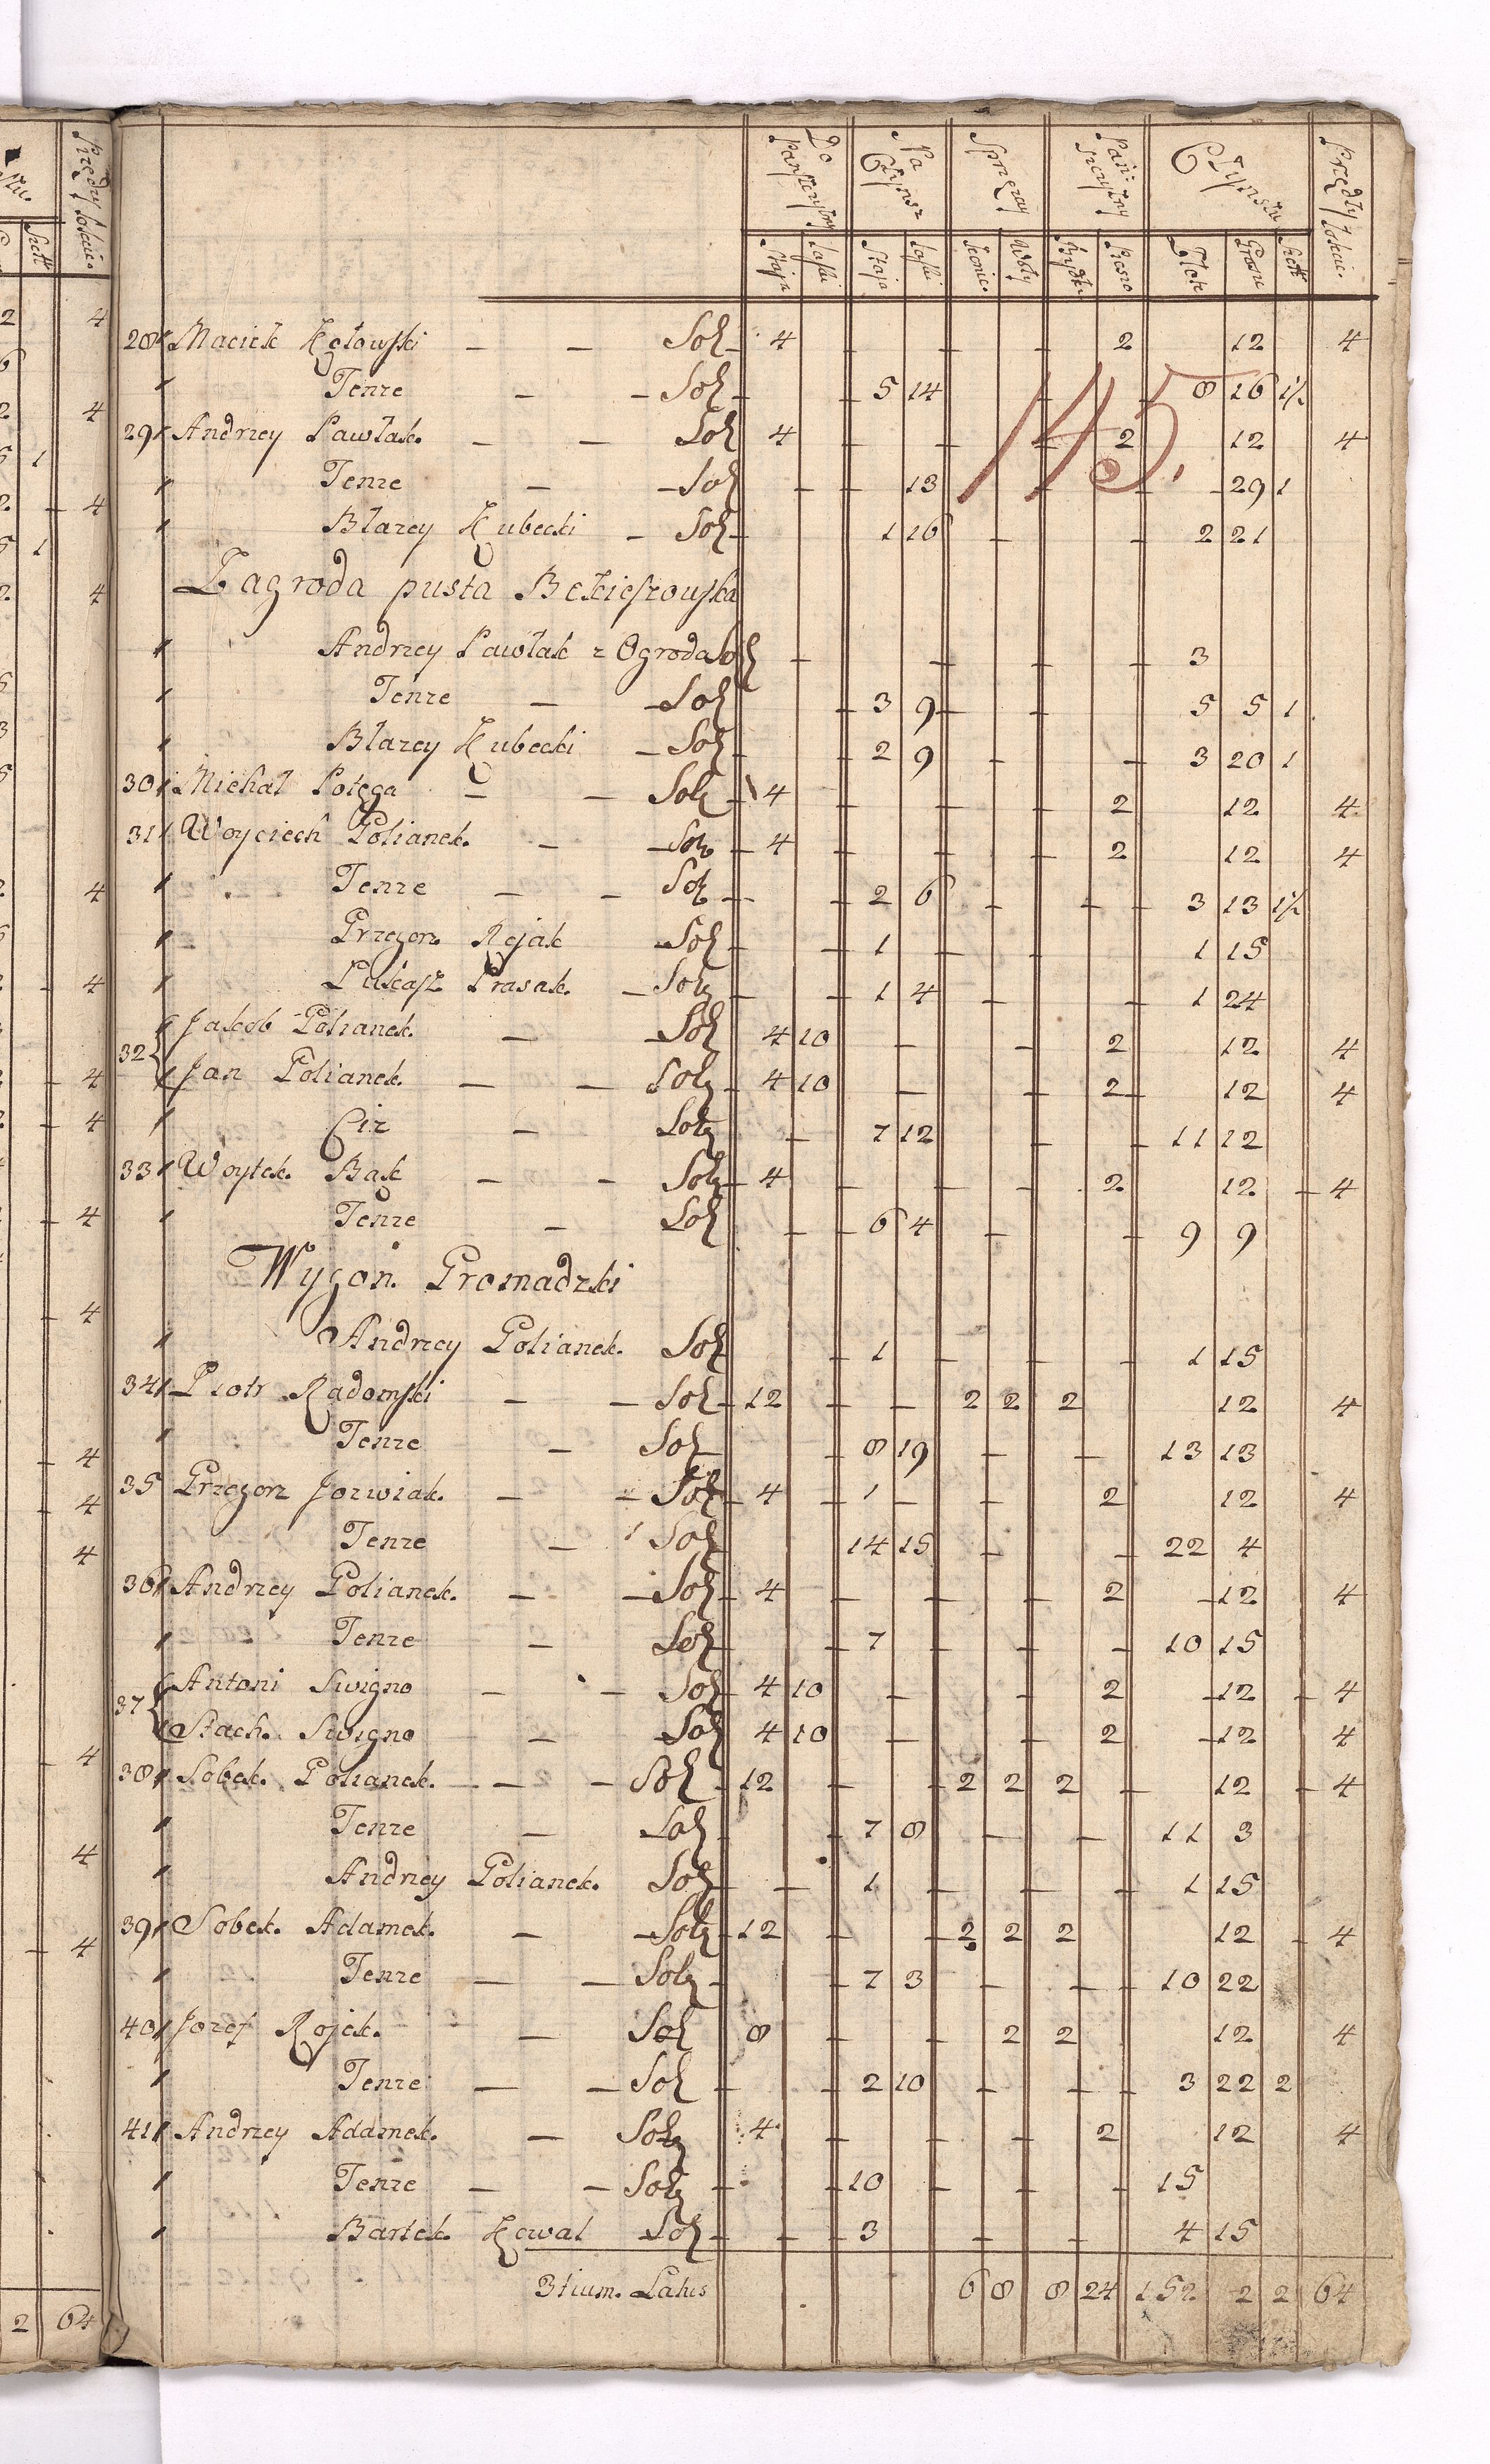 Do Pańszczyzny Na Czynsz Sprzęzay Pańszczyzny Czynszu Przędzy Łokcie.
Staja Laski Staja Laski Konie. Woły Bydł: Pieszo Złote Grosze Szel:
28 Maciek Kotowski — — Sol 4 2 12 4
Tenze — Sol 5 14 8 16 1½
145.
29 Andrzey Pawlak — — Sol 4 2 12 4
Tenze — Sol 13 29 1
Błazey Kubecki — Sol 1 16 2 21
Zagroda pusta
Andrzey Pawlak z Ogroda Sol 3
Tenze — Sol 3 9 5 5 1
Błazey Kubecki — Sol 2 9 3 20 1
30 Michał Potęga — — Sol 4 2 12 4
31 Woyciech Polianek. — Sol 4 2 12 4
Tenze — — Sol 2 6 3 13 1½
Grzegorz Rojak Sol 1 1 15
Łukasz Prasak. — Sol 1 4 1 24
32 Jakob Polianek. — Sol 4 10 2 12 4
Jan Polianek. — — Sol 4 10 2 12 4
Ciz — Sol 7 12 11 12
33 Woytek. Bak — — Sol 4 2 12 4
Tenze — Sol 6 4 9 9
Wygon. Gromadzki
Andrzey Polianek. Sol 1 1 15
34 Piotr Radomski — — Sol 12 2 2 2 12 4
Tenze — Sol 8 19 13 13
35 Grzegorz Jozwiak. — — Sol 4 1 — 2 12 4
Tenze — Sol 14 15 22 4
36 Andrzey Polianek. — — Sol 4 2 12 4
Tenze — Sol 7 10 15
37 Antoni Swigno — — Sol 4 10 2 12 4
Stach. Swigno — Sol 4 10 2 12 4
38 Sobek. Polianek. — — Sol 12 2 2 2 12 4
Tenze — Sol 7 8 11 3
Andrzey Polianek. Sol 1 1 15
39 Sobek. Adamek. — Sol 12 2 2 2 12 4
Tenze — — Sol 7 3 10 22
40 Jozef Rojek. — Sol 8 2 2 12 4
Tenze — — Sol 2 10 3 22 2
41 Andrzey Adamek. — Sol 4 2 12 4
Tenze — — Sol 10 15
Bartek. Kowal Sol 3 4 15
Latus 6 8 8 24 152 2 2 64